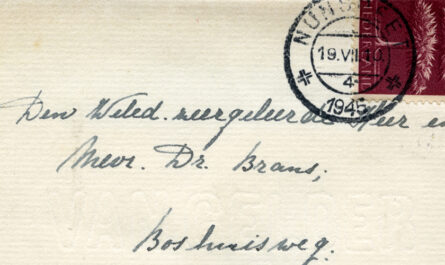 NUNSPEET
19.VII.10
4
1945
Den Weled. zeergeleerde Heer en
Mevr. Dr. Brans,
Boshuisweg.